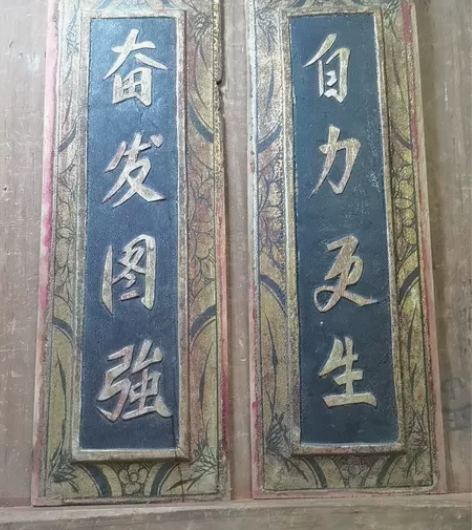 自力更生
奋发图強